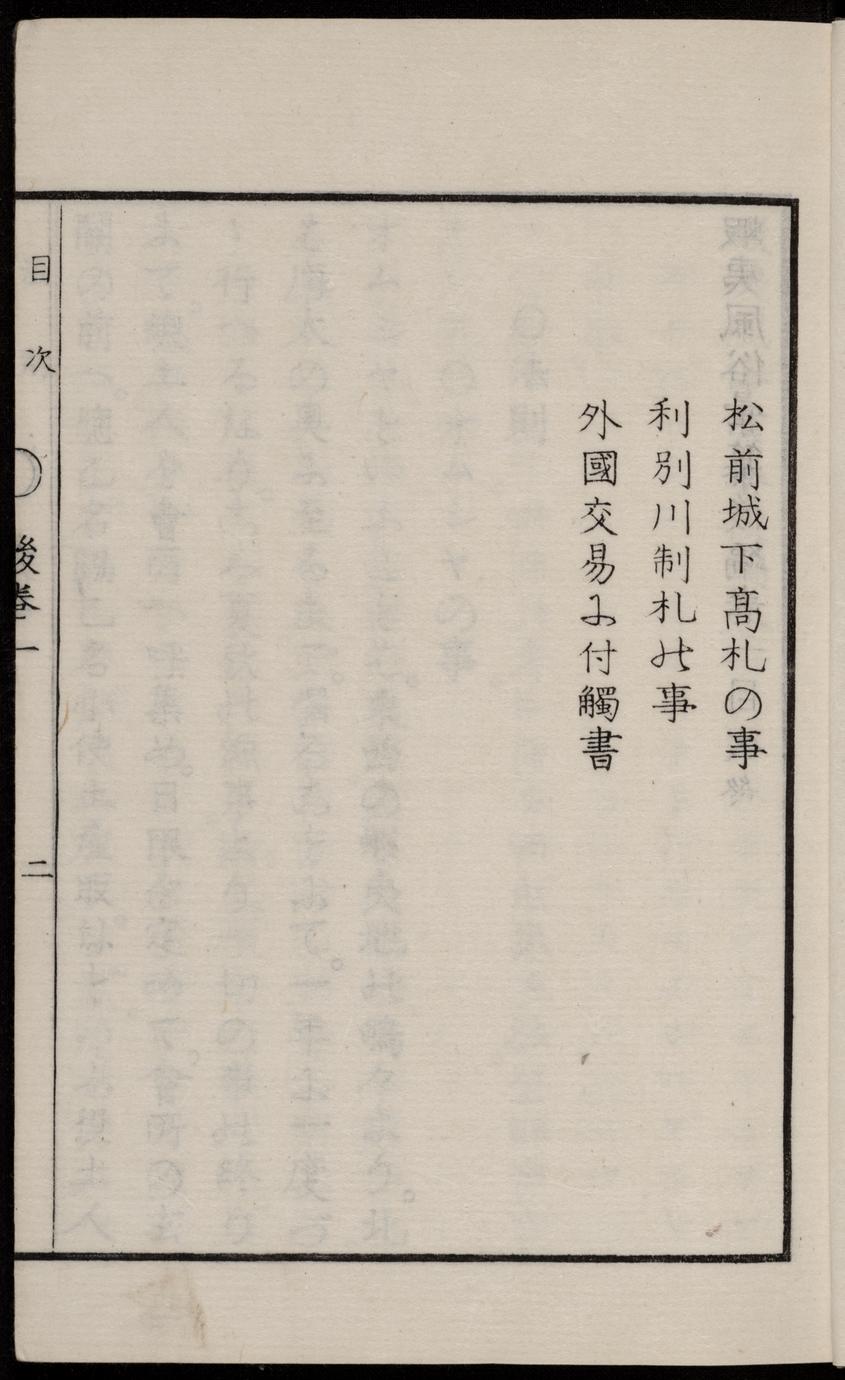 松前城下髙札の事
利別川制札の事
外國交易に付觸書
目次 後巻一 二